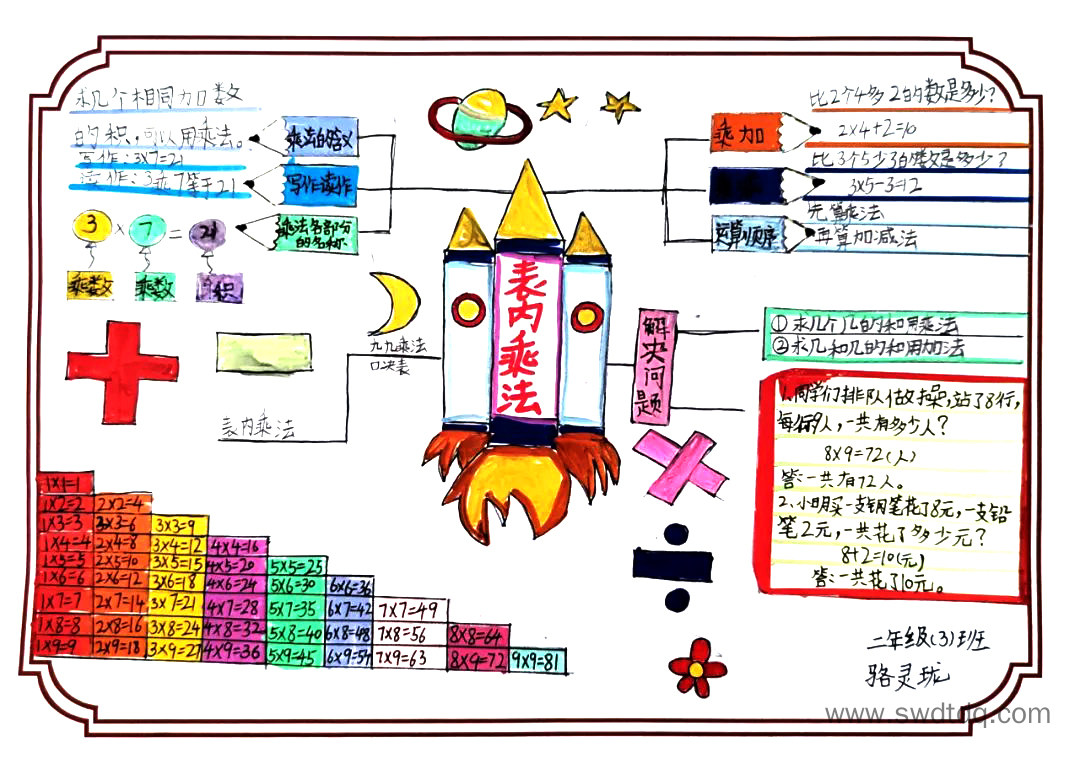 求几个相同加数
的积，可以用乘法。
写作：3×7=21
读作：3乘7等于21
乘法的含义
写作读作
乘法各部分
的名称
3 × 7 = 21
乘数 乘数 积
九九乘法
口决表
表内乘法
表内乘法
比2个4多2的数是多少？
2×4+2=10
比3个5少3的数是多少？
3×5-3=12
先算乘法
再算加减法
乘加
运算顺序
解决问题
①求几个几的和用乘法
②求几和几的和用加法
1、同学们排队做操，站了8行，
每行9人，一共有多少人？
8×9=72(人)
答：一共有72人。
2、小明买一支钢笔花了8元，一支铅
笔2元，一共花了多少元？
8+2=10(元)
答：一共花了10元。
1×1=1
1×2=2 2×2=4
1×3=3 3×3=6 3×3=9
1×4=4 2×4=8 3×4=12 4×4=16
1×5=5 2×5=10 3×5=15 4×5=20 5×5=25
1×6=6 2×6=12 3×6=18 4×6=24 5×6=30 6×6=36
1×7=7 2×7=14 3×7=21 4×7=28 5×7=35 6×7=42 7×7=49
1×8=8 2×8=16 3×8=24 4×8=32 5×8=40 6×8=48 7×8=56 8×8=64
1×9=9 2×9=18 3×9=27 4×9=36 5×9=45 6×9=54 7×9=63 8×9=72 9×9=81
二年级(3)班
骆灵珑
www.swdtdq.com